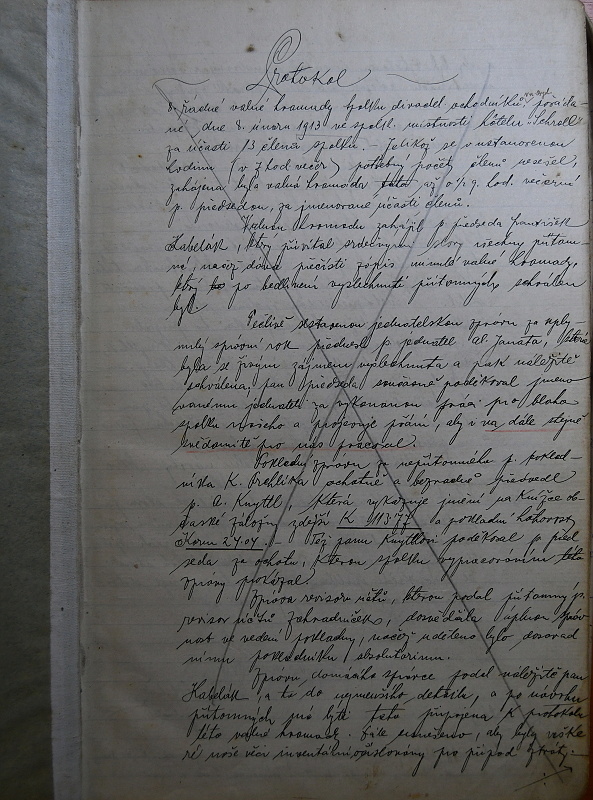 Protokol
8. řádné valné hromady spolku divadel. ochotníků, pořáda-
né dne 8. února 1913 ve spolk. místnosti hotelu "Schroll"
za účasti 13 členů spolku. - Jelikož se v ustanovenou
hodinu (v 7 hod več.) potřebný počet členů nesešel,
zahájena byla valná hromada tato až o ½ 9. hod. večerní
p. předsedou, za jmenované účasti členů.
Valnou hromadu zahájil p. předseda František
Kabelák, který přivítal srdečnými slovy všechny přítom-
né, načež dává přečísti zápis minulé valné hromady,
který po bedlivém vyslechnutí přítomnych, schválen
byl.
Pečlivě sestavenou jednatelskou zprávu za uply-
nulý správní rok přednesl p. jednatel Al. Janata, která
byla se živým zájmem vyslechnuta a pak náležitě
schválena; pan předseda současně poděkoval jmeno-
vanému jednateli za vykonanou práci pro blaho
spolku našeho a projevuje přání, aby i na dále stejně
svědomitě pro nás pracoval.
Pokladní zprávu za nepřítomného p. poklad-
níka K. ochotně a bezvadně předvedl
p. A. Knyttl, která vykazuje jmění na knížce ob-
čanské záložny zdejší K 113.77 a pokladní hotovost
Korun 27.04. - Též panu Knyttlovi poděkoval p. před-
seda za ochotu, kterou spolku vypracováním této
zprávy prokázal.
Zpráva revisorů účtů, kterou podal přítomný p.
revisor účtů Zahradníček, dosvědčila úplnou správ-
nost ve vedení pokladny, načež uděleno bylo dosavad-
nímu pokladníku absolutorium.
Zprávu domácího správce podal náležitě pan
a to do nejmenšího detailu, a po návrhu
přítomných má býti tato připojena k protokolu
této valné hromady. Dále usneseno, aby byly veške-
ré naše věci inventární očíslovány pro případ ztráty. -